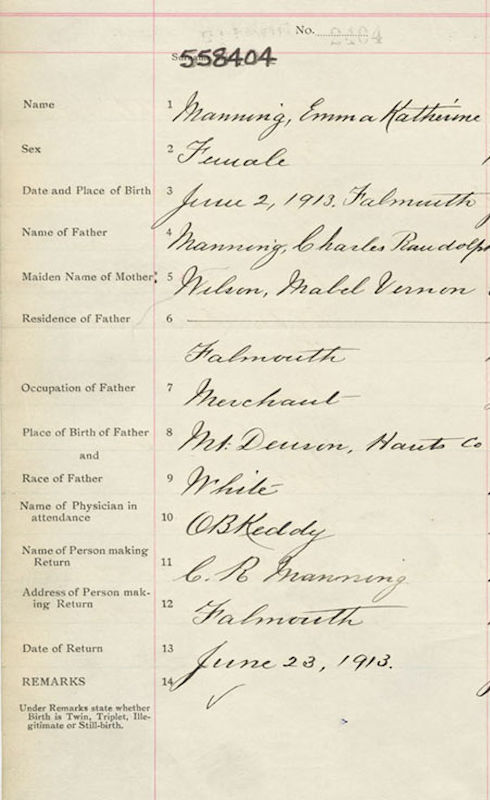 No.
558404
Name 1 Manning, Emma Katherine
Sex 2 Female
Date and Place of Birth 3 June 2, 1913. Falmouth
Name of Father 4 Manning, Charles Randolph
Maiden Name of Mother 5 Wilson, Mabel Vernon
Residence of Father 6
Falmouth
Occupation of Father 7 Merchant
Place of Birth of Father 8 Mt. Denson, Hants Co
and
Race of Father 9 White
Name of Physician in
attendance 10 OBKeddy
Name of Person making
Return 11 C. R Manning
Address of Person mak-
ing Return 12 Falmouth
Date of Return 13 June 23, 1913.
REMARKS 14
Under Remarks state whether
Birth is Twin, Triplet, Ille-
gitimate or Still-birth.